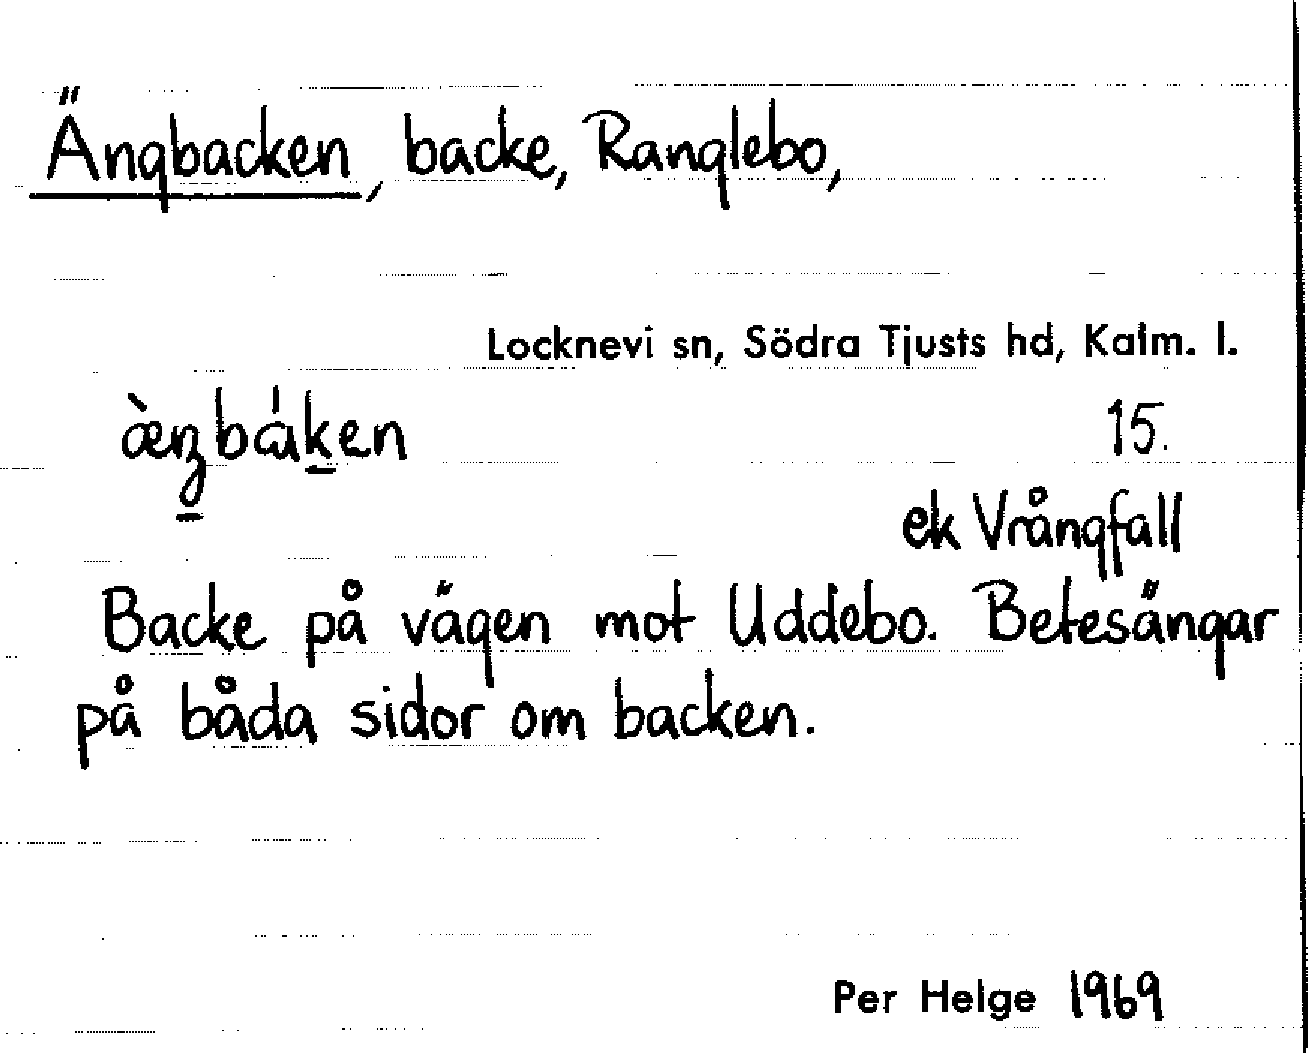 Ängbacken, backe, Ranglebo,
Locknevi sn, Södra Tjusts hd, Kalm. l.
15.
ek Vrångfall
Backe på vägen mot Uddebo. Betesängar
på båda sidor om backen.
Per Helge 1969